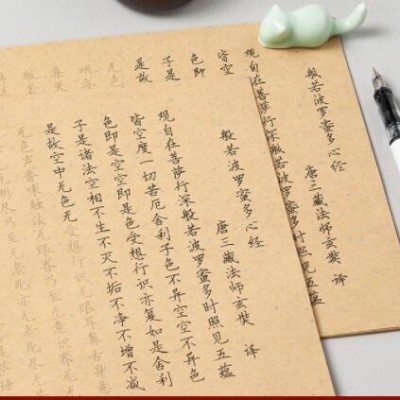 般若波罗蜜多心经
唐三藏法师玄奘 译
观自在菩萨行深般若波罗蜜多时照见五蕴
皆空
色即
子是
是故
无色
般若波罗蜜多心经
唐三藏法师玄奘 译
观自在菩萨行深般若波罗蜜多时照见五蕴
皆空度一切苦厄舍利子色不异空空不异色
色即是空空即是色受想行识亦复如是舍利
子是诸法空相不生不灭不垢不净不增不减
是故空中无色无受想行识无眼耳鼻舌身意
无色声香味触法无眼界乃至无意识界无无